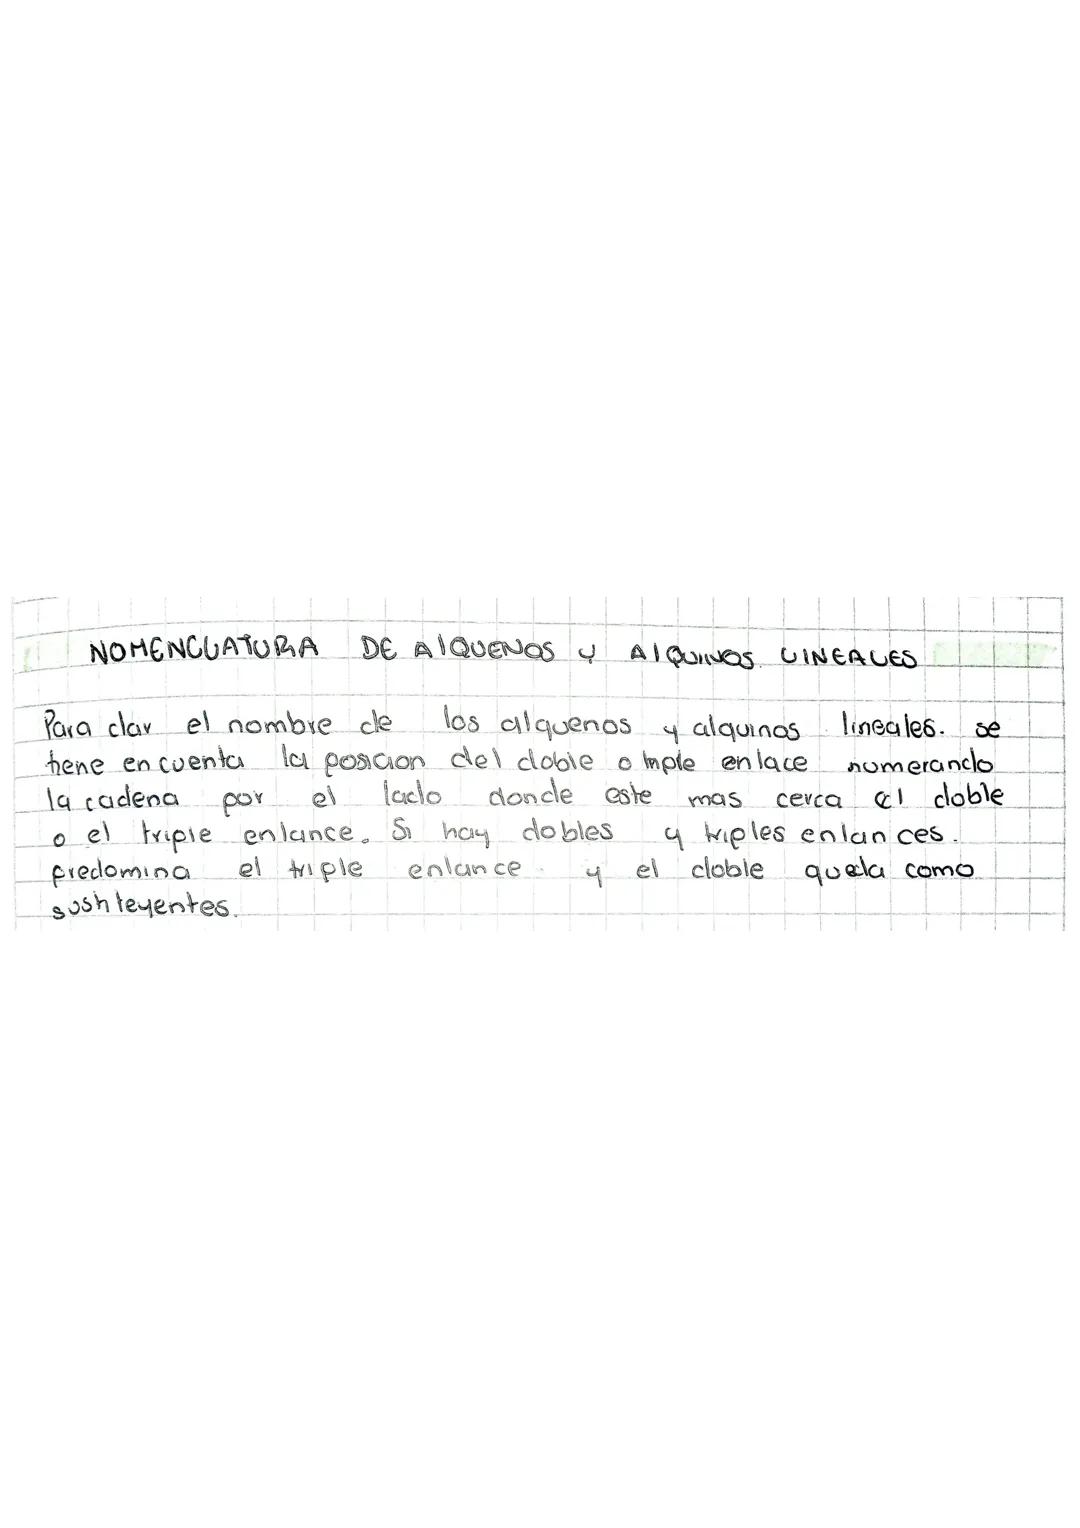 NOMENCLATURA DE AlQUENOS y AlQUINOS LINEALES
Para dar el nombre de los alquenos y alquinos lineales. se
tiene en cuenta la posicion del doble o triple enlace numerando
la cadena por el lado donde este mas cerca el doble
o el triple enlance. Si hay dobles y triples enlances.
predomina el triple enlance y el doble queda como
sustiteyentes.